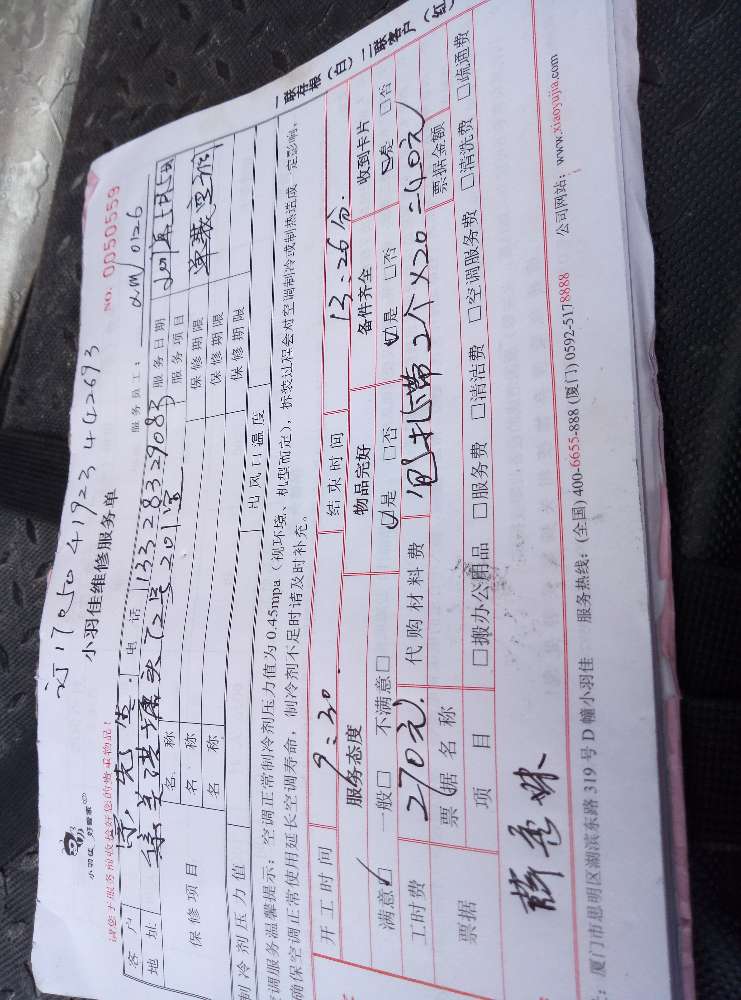 订17050419234442693
小羽佳 好管家
小羽佳维修服务单
NO: 0050559
请您于服务前收捡好您的贵重物品!
服务员工: 0126
客户 先生 电话 13328329083 服务日期
地址 集美 201室 服务项目 单装空调
保修项目 名称 保修期限
名称 保修期限
名称 保修期限
制冷剂压力值 出风口温度
空调服务温馨提示:空调正常制冷剂压力值为0.45mpa(视环境、机型而定),拆装过程会对空调制冷或制热造成一定影响,
确保空调正常使用延长空调寿命,制冷剂不足时请及时补充。
一联存根(白)二联客户(红)
开工时间 9:30. 结束时间 13:26分.
服务态度 物品完好 备件齐全 收到卡片
满意☑ 一般□ 不满意□ ☑是 □否 ☑是 □否 ☑是 □否
工时费 270元 代购材料费 包扎带2个×20=40元
票据 票据名称 票据金额
项目 □搬办公用品 □服务费 □清洁费 □空调服务费 □清洗费 □疏通费
厦门市思明区湖滨东路319号D幢小羽佳 服务热线:(全国)400-6655-888 (厦门)0592-5178888 公司网站:www.xiaoyujia.com